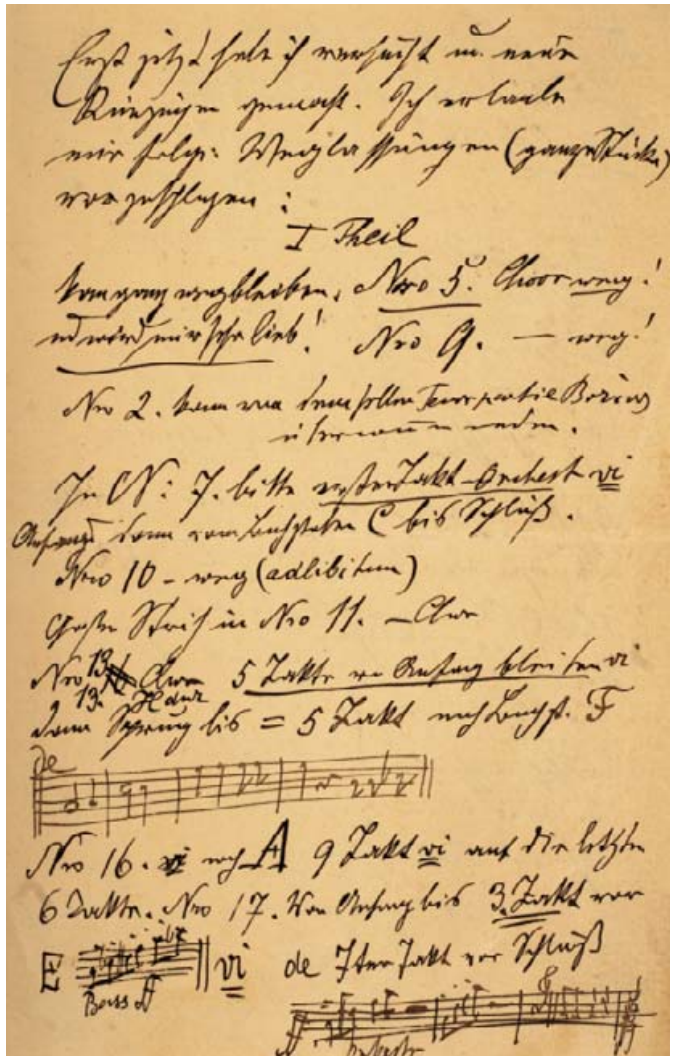 Erst jetzt habe ich versucht u. neue
gemacht. Ich erlaube
mir folg: Weglassungen (ganze Stücke)
vorzuschlagen:
I Theil
kann ganz wegbleiben. Nro 5. Chor weg!
wird mir sehr lieb! Nro 9. — weg!
Nro 2. kann von
übernommen werden.
In N: 7. bitte erster Takt Orchest vi
Anfang dann vom Buchstaben C bis Schluß.
Nro 10 - weg (ad libitum)
Großer Strich in Nro 11. - Chor
Nro 13 5 Takte v. Anfang bleiben vi
13. H dur
dann Sprung bis = 5 Takt nach Buchst. F
de
Nro 16. vi nach A 9 Takt vi auf die letzten
6 Takte. Nro 17. Von Anfang bis 3. Takt vor
E vi de 7ter Takt vor Schluß
Bass